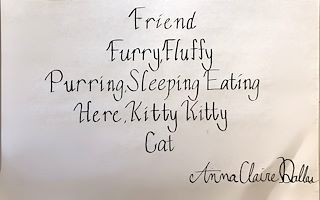 Friend
Furry, Fluffy
Purring, Sleeping Eating
Here, Kitty Kitty
Cat
Anna Claire Dallas